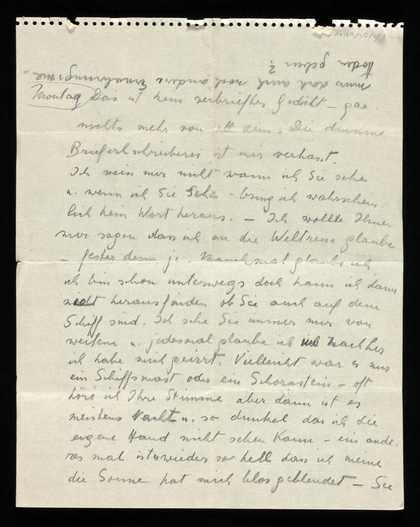 Montag Das ist kein verbrieftes Gedicht – gar
nichts mehr von all dem. Die dumme
Brieferlschreiberei ist mir verhasst.
Ich weiss nur nicht wann ich Sie sehe
u. wenn ich Sie sehe – bring ich wahrschein
lich kein Wort heraus. – Ich wollte Ihnen
nur sagen dass ich an die Weltreise glaube
– fester denn je. Manchmal glaube ich
ich bin schon unterwegs doch kann ich dann
nicht herausfinden ob Sie auch auf dem
Schiff sind. Ich sehe Sie immer nur von
weitem u. jedesmal glaube ich nachher
ich habe mich geirrt. Vielleicht war es nur
ein Schiffsmast oder ein Schornstein – oft
höre ich Ihre Stimme aber dann ist es
meistens Nacht u. so dunkel das ich die
eigene Hand nicht sehen kann – ein ande
res mal ists wieder so hell dass ich meine
die Sonne hat mich blos geblendet – Sie